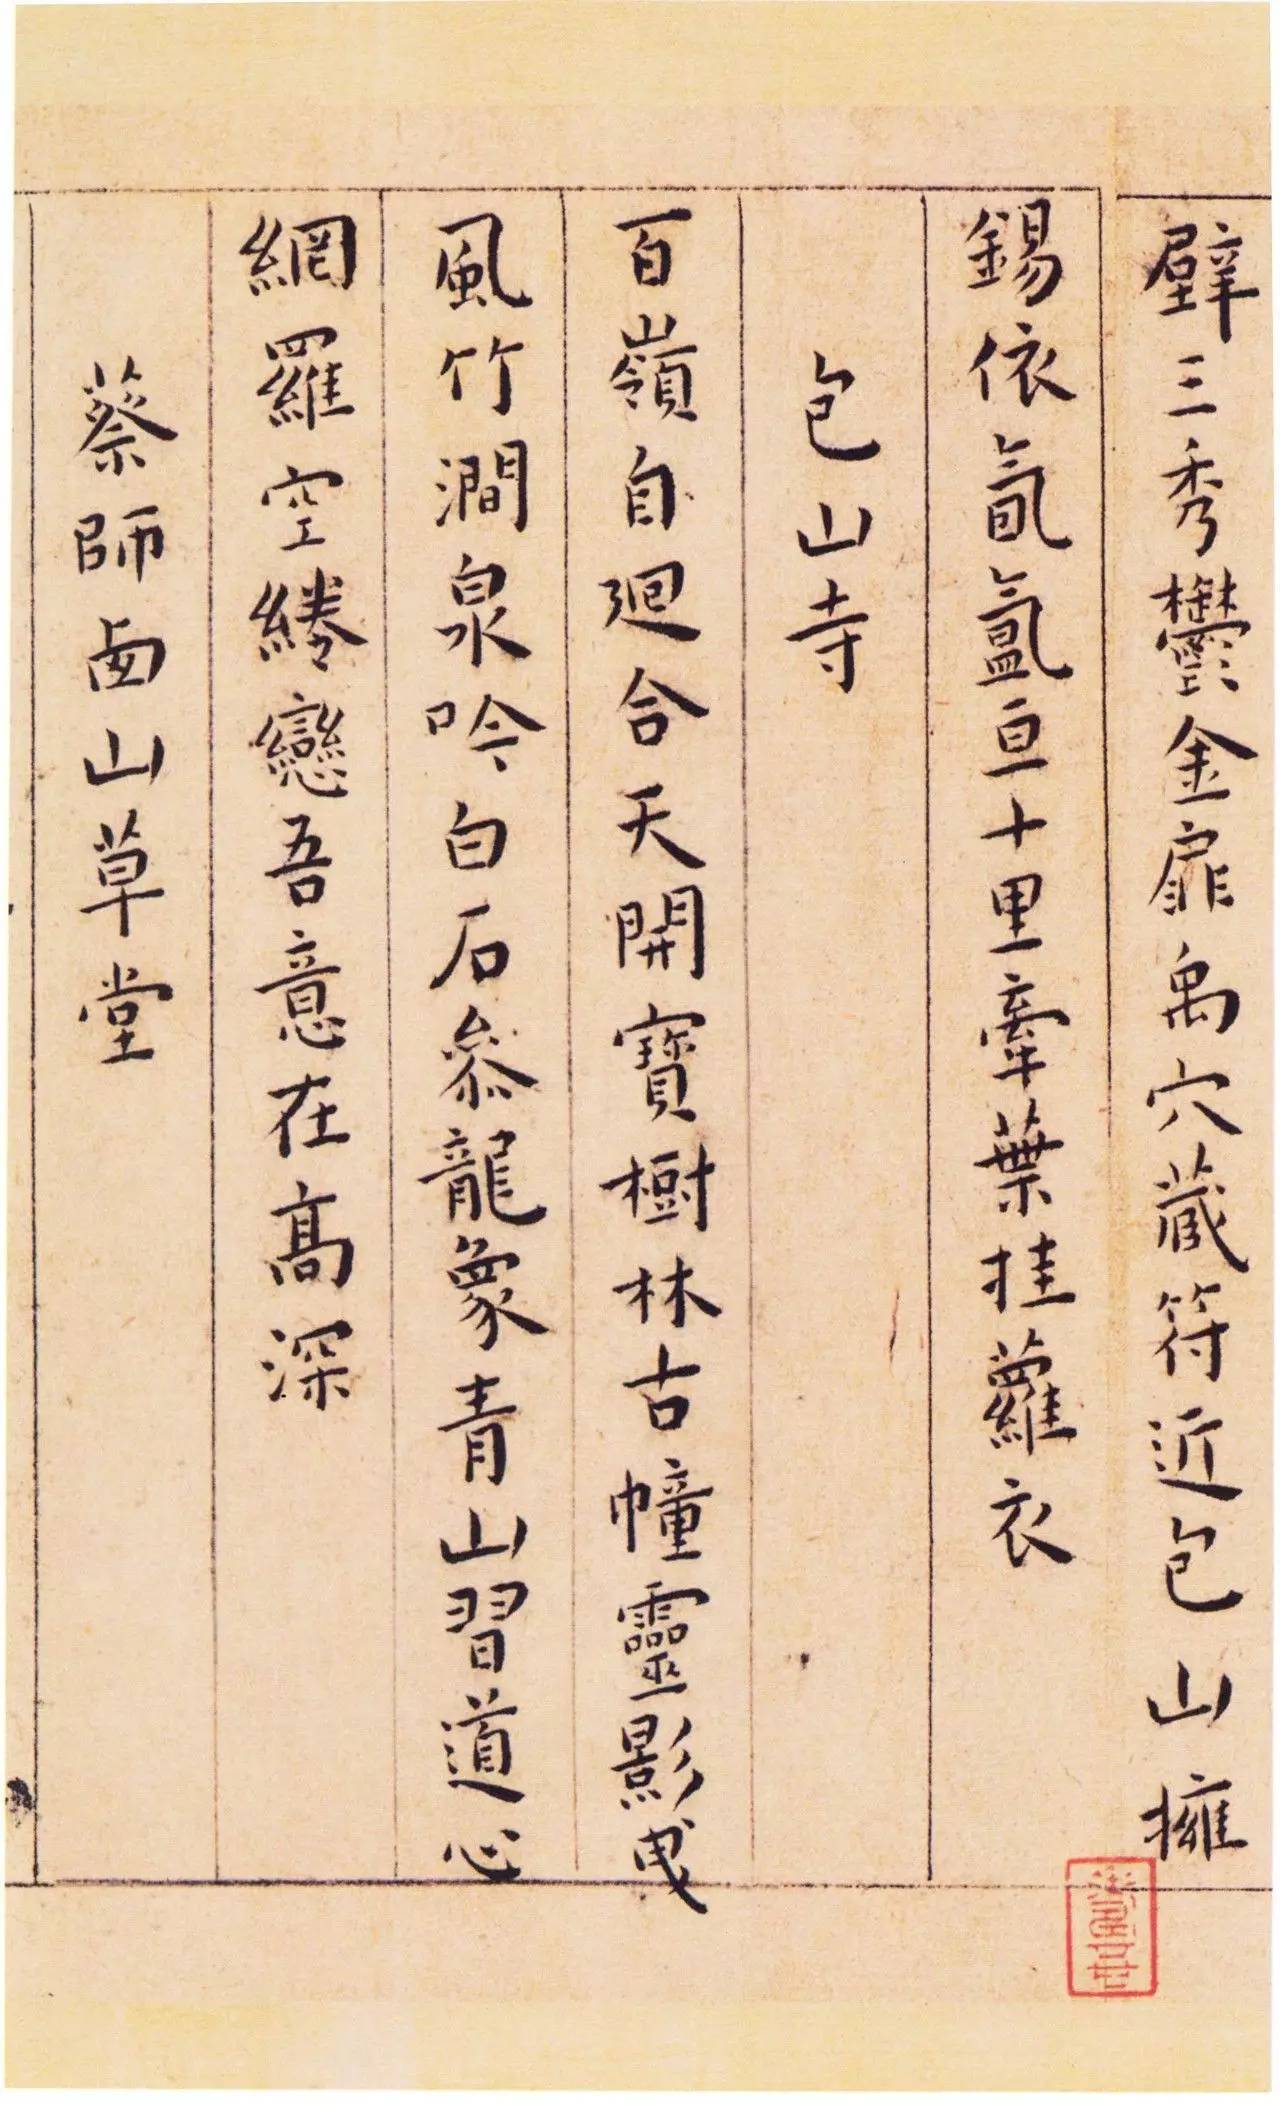 壁三秀鬱金扉禹穴藏符近包山擁
錫依氤氳亘十里牽葉挂蘿衣
包山寺
百嶺自迴合天開寶樹林古幢靈影曳
風竹澗泉吟白石參龍象青山習道心
網羅空綣戀吾意在高深
蔡師卣山草堂